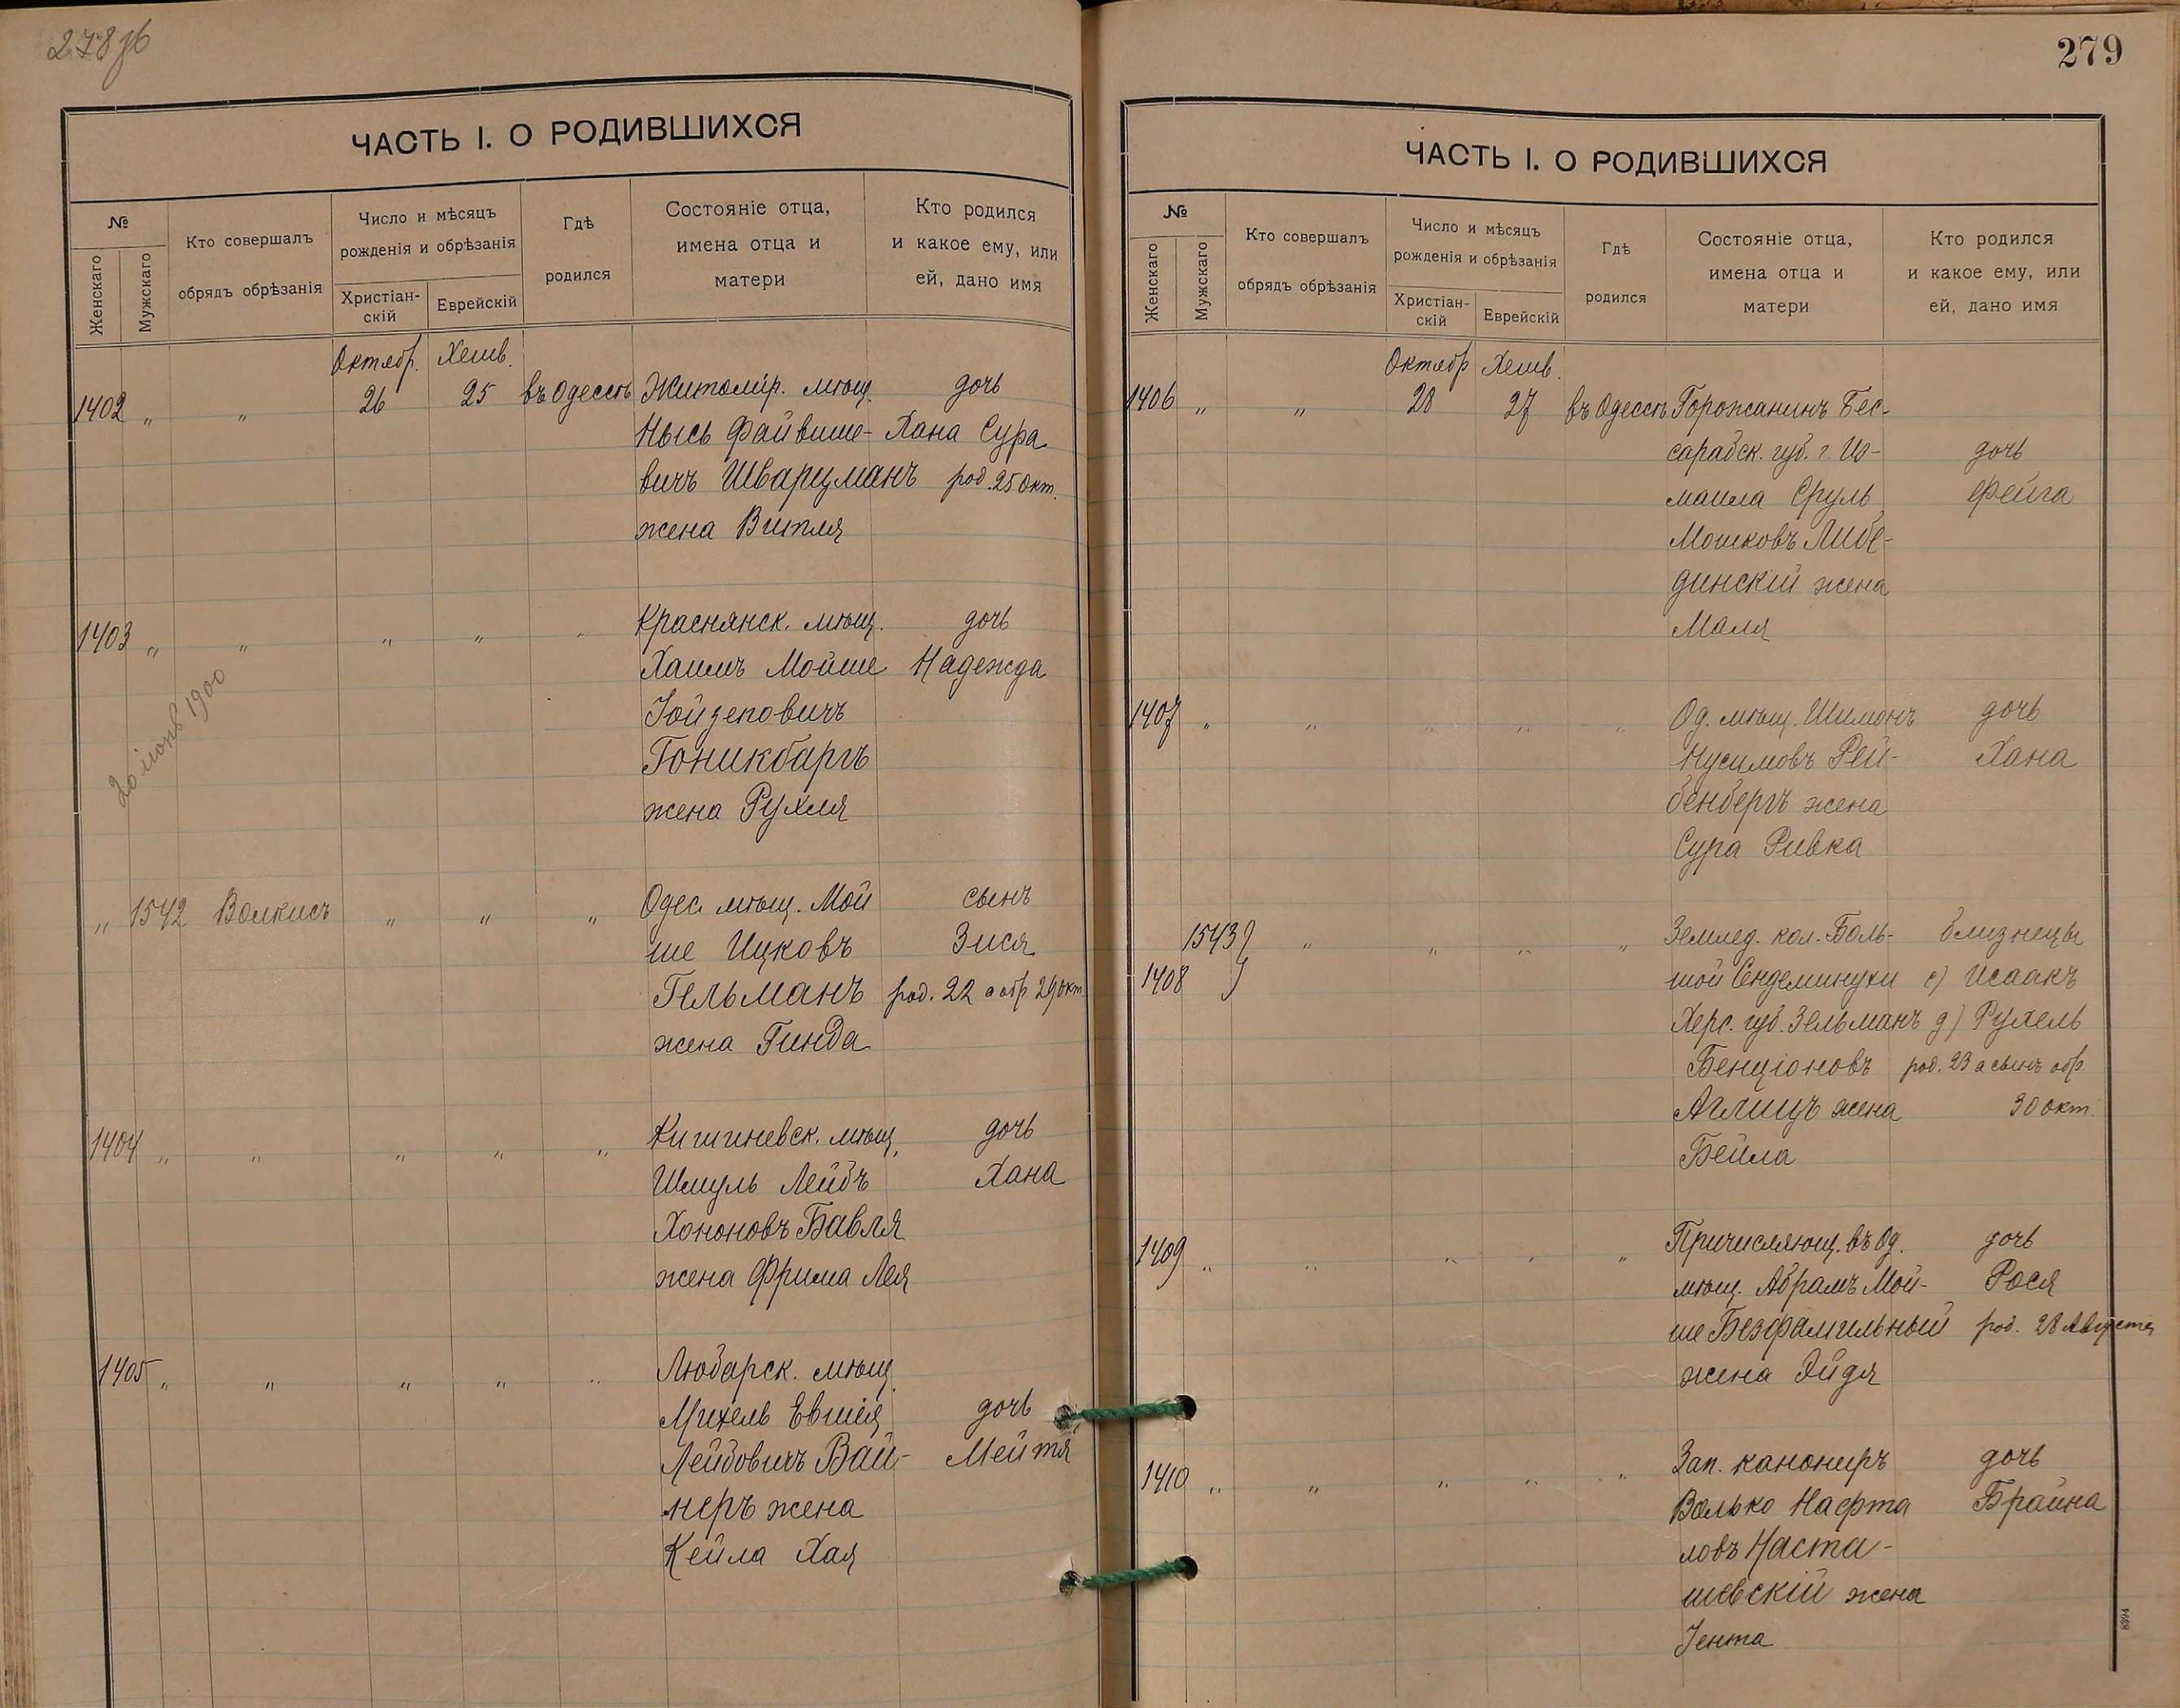 278об
ЧАСТЬ I. О РОДИВШИХСЯ
№
Женскаго
Мужскаго
Кто совершалъ
обрядъ обрѣзанія
Число и мѣсяцъ
рожденія и обрѣзанія
Христіан-
скій
Еврейскій
Гдѣ
родился
Состояніе отца,
имена отца и
матери
Кто родился
и какое ему, или
ей, дано имя
Октябр. Хешв.
1402 „ „ 26 25 въ Одессѣ Житомір. мѣщ. дочь
Нысь Файвише- Хана Сура
вичъ Шварцманъ род. 25 окт.
жена Витля
1403 „ „ „ „ „ Краснянск. мѣщ. дочь
Хаимъ Мойше Надежда
Іойзеповичъ
Гоникбаргъ
жена Рухля
1900
„ 1542 Волкисъ „ „ „ Одес. мѣщ. Мой сынъ
ше Ицковъ Зися
Гельманъ род. 22 а обр. 29 окт.
жена Гинда
1404 „ „ „ „ „ Кишиневск. мѣщ. дочь
Шмуль Лейбъ Хана
Хононовъ Бавля
жена Фрима Лея
1405 „ „ „ „ „ Любарск. мѣщ.
Михель Евшія дочь
Лейбовичъ Вай- Мейтя
неръ жена
Кейла Хая
279
ЧАСТЬ I. О РОДИВШИХСЯ
№
Женскаго
Мужскаго
Кто совершалъ
обрядъ обрѣзанія
Число и мѣсяцъ
рожденія и обрѣзанія
Христіан-
скій
Еврейскій
Гдѣ
родился
Состояніе отца,
имена отца и
матери
Кто родился
и какое ему, или
ей, дано имя
Октябр Хешв.
1406 „ „ 28 27 въ Одессѣ Горожанинъ Бес-
сарабск. губ. г. Из- дочь
маила Сруль Фейга
Мошковъ Либе-
динскій жена
Маля
1407 „ „ „ „ „ Од. мѣщ. Шимонъ дочь
Нусимовъ Рей- Хана
бенбергъ жена
Сура Ривка
1543 „ „ „ „ Землед. кол. Боль- близнецы
1408 шой Сейдеминухи с) Исаакъ
Херс. губ. Зельманъ д) Рухель
Бенціоновъ род. 23 а сынъ обр.
Аглицъ жена 30 окт.
Бейла
1409 „ „ „ „ „ Причисляющ. въ Од. дочь
мѣщ. Абрамъ Мой- Рося
ше Безфамильный род. 28 Августа
жена Эйдя
1410 „ „ „ „ „ Зап. канониръ дочь
Волько Нафта Брайна
ловъ Наста-
шевскій жена
Іента
8394